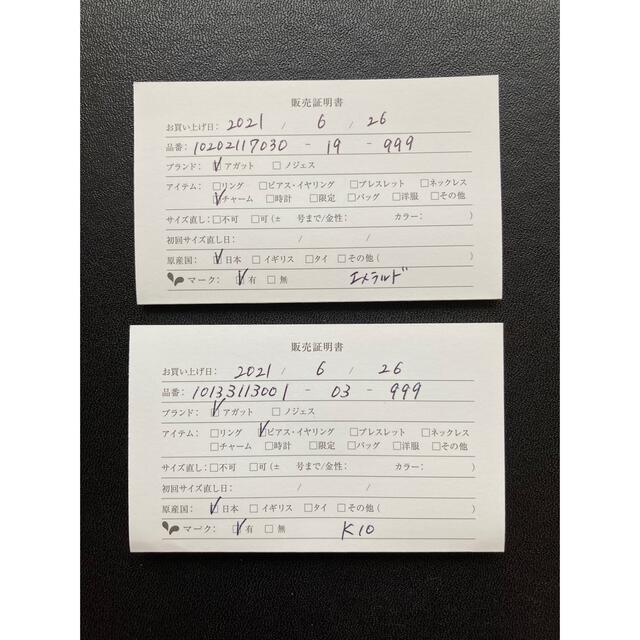 販売証明書
お買い上げ日: 2021 / 6 / 26
品番: 10202117030 - 19 - 999
ブランド: ☑アガット □ノジェス
アイテム: □リング □ピアス・イヤリング □ブレスレット □ネックレス
☑チャーム □時計 □限定 □バッグ □洋服 □その他
サイズ直し: □不可 □可(± 号まで/金性: カラー: )
初回サイズ直し日: / /
原産国: ☑日本 □イギリス □タイ □その他( )
マーク: ☑有 □無 エメラルド
販売証明書
お買い上げ日: 2021 / 6 / 26
品番: 10133113001 - 03 - 999
ブランド: ☑アガット □ノジェス
アイテム: □リング ☑ピアス・イヤリング □ブレスレット □ネックレス
□チャーム □時計 □限定 □バッグ □洋服 □その他
サイズ直し: □不可 □可(± 号まで/金性: カラー: )
初回サイズ直し日: / /
原産国: ☑日本 □イギリス □タイ □その他( )
マーク: ☑有 □無 K10